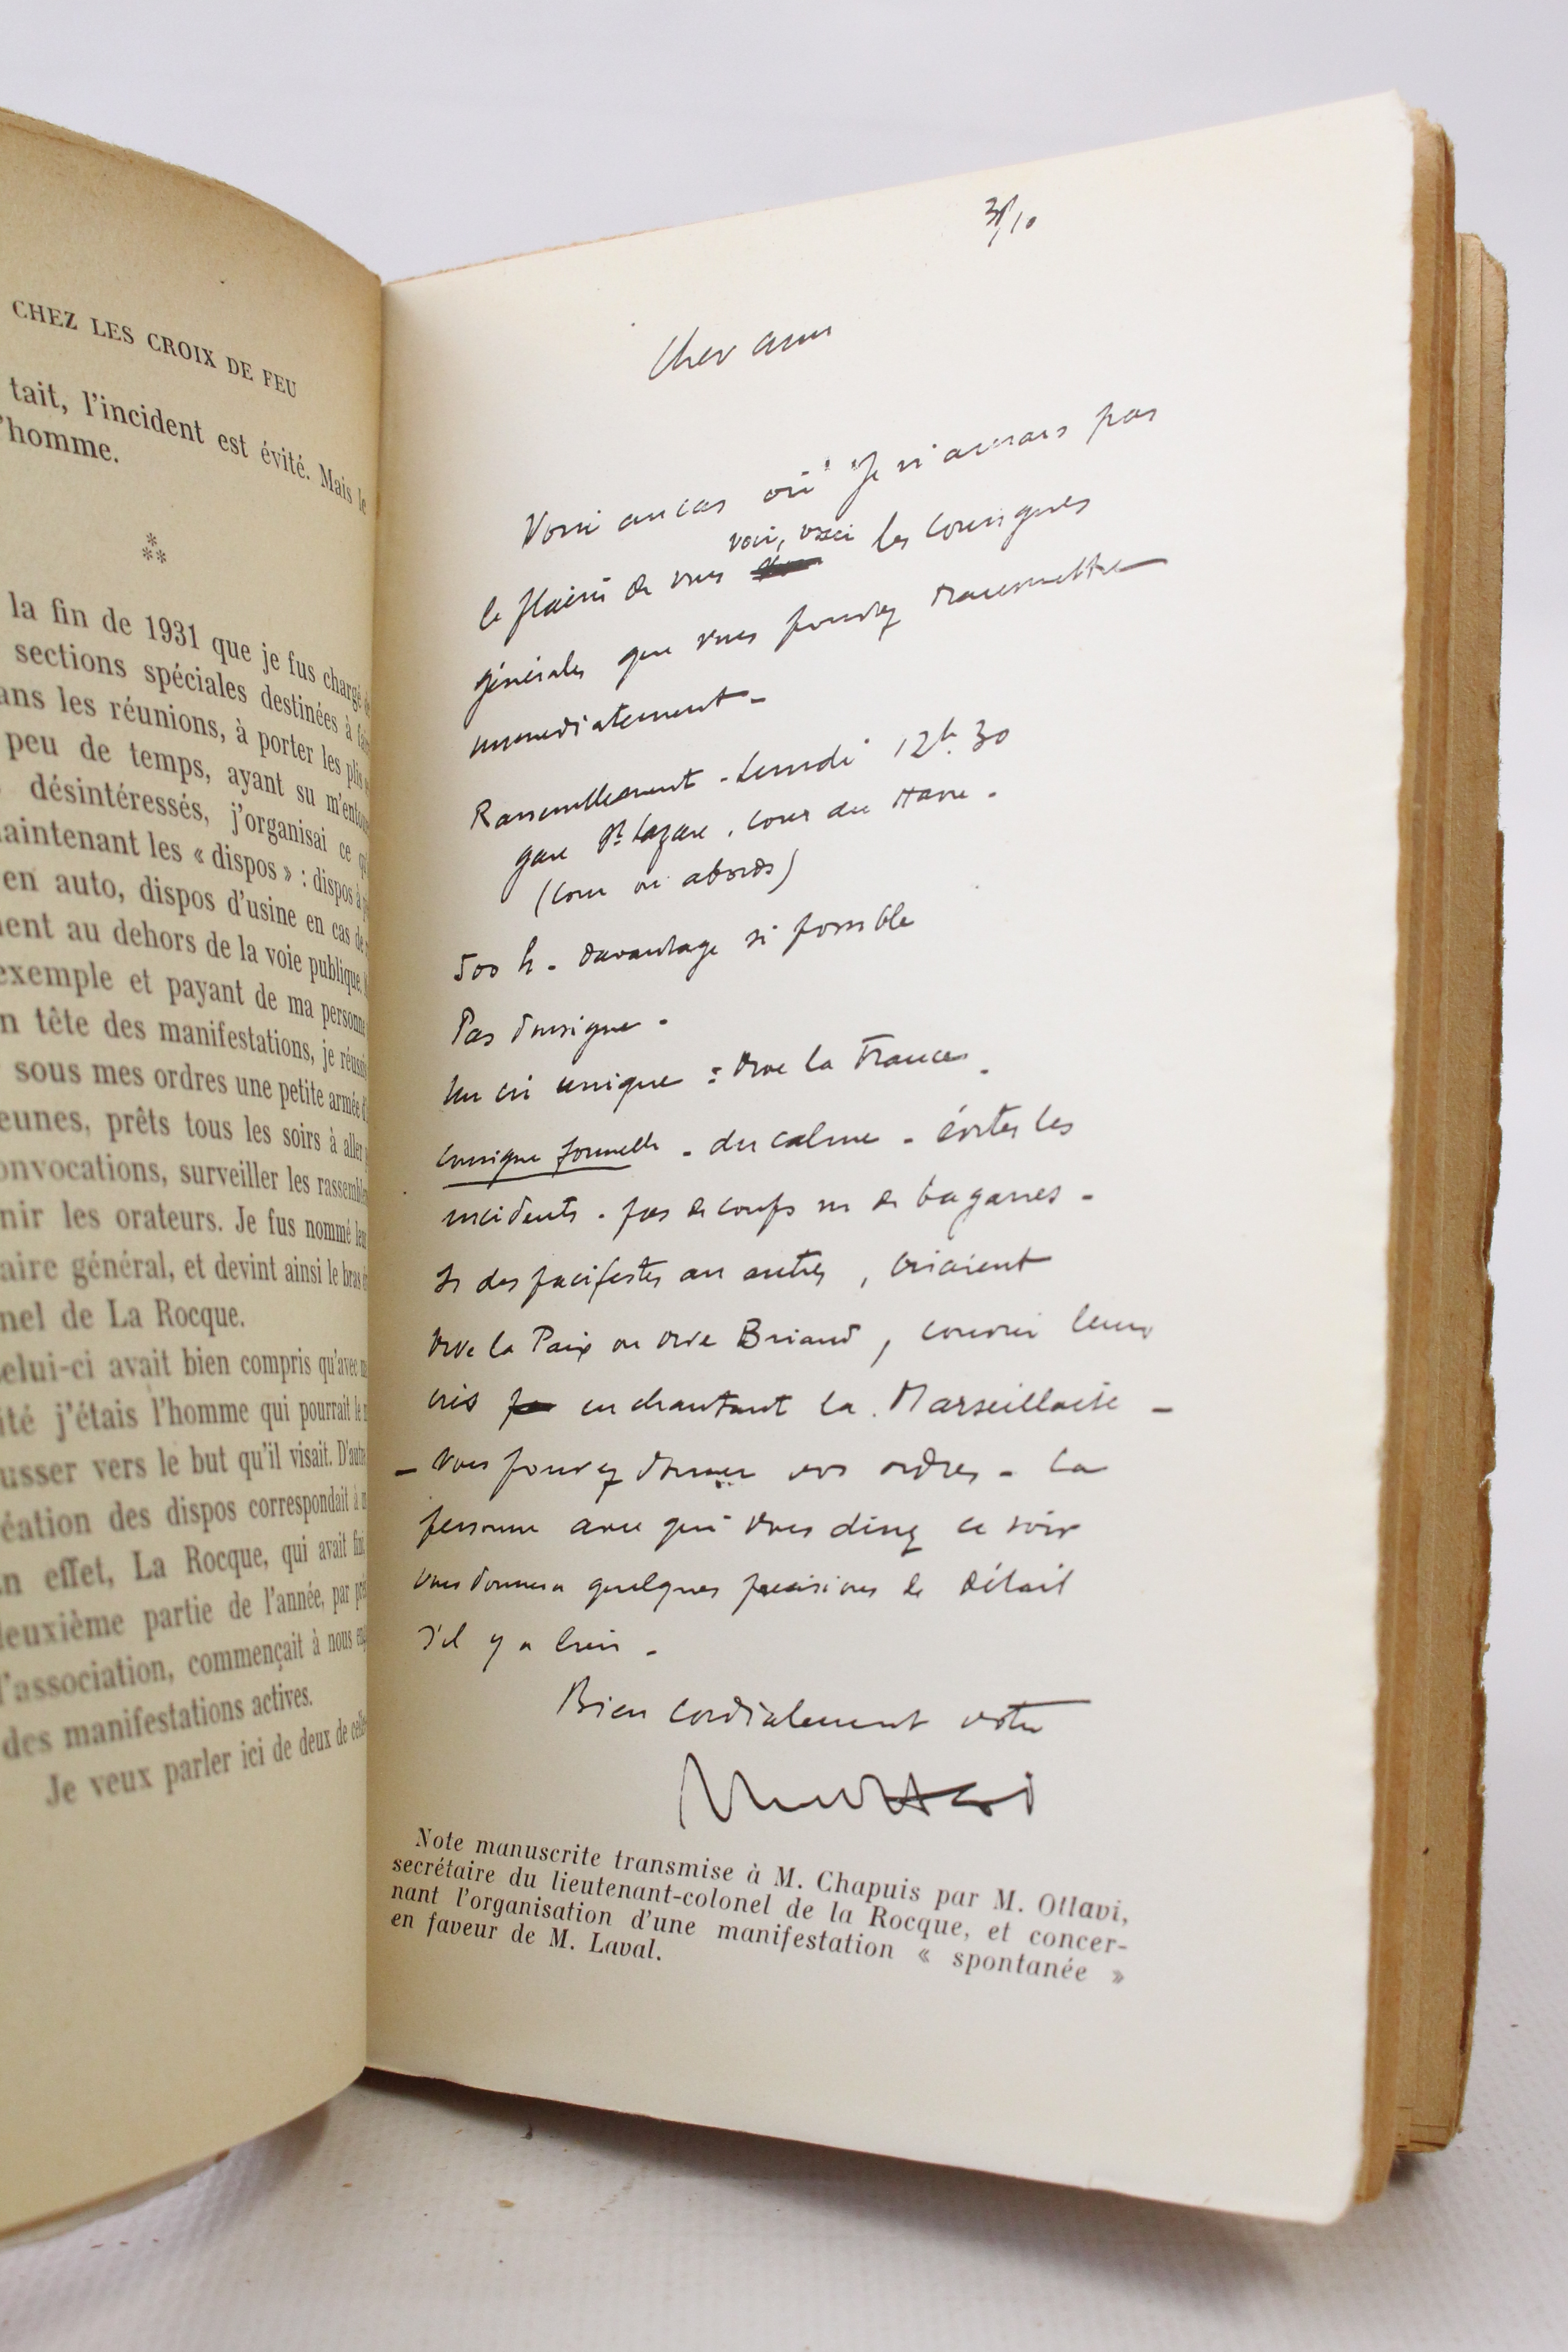 CHEZ LES CROIX DE FEU
tait, l'incident est évité. Mais le
'homme.
la fin de 1931 que je fus chargé
sections spéciales destinées à
ans les réunions, à porter les plis
peu de temps, ayant su
désintéressés, j'organisai ce
maintenant les « dispos » : dispos à
en auto, dispos d'usine en cas de
ent au dehors de la voie publique.
exemple et payant de ma personne
n tête des manifestations, je
sous mes ordres une petite armée
eunes, prêts tous les soirs à aller
onvocations, surveiller les
nir les orateurs. Je fus nommé
aire général, et devint ainsi le bras
nel de La Rocque.
elui-ci avait bien compris qu'avec
ité j'étais l'homme qui pourrait le
usser vers le but qu'il visait.
éation des dispos correspondait à
n effet, La Rocque, qui avait
deuxième partie de l'année, par
l'association, commençait à nous
des manifestations actives.
Je veux parler ici de deux de
31/10
Cher ami
Voici au cas où je n'aurais pas
le plaisir de vous voir, voici les consignes
générales que vous pourrez transmettre
immediatement -
Rassemblement - Lundi 12h 30
gare St Lazare, cour du Havre -
(cour ou abords)
500 h - davantage si possible
Pas d'insigne -
Un cri unique : Vive la France -
Consigne formelle - du calme - éviter les
incidents - pas de coups ni de bagarres -
Si des pacifistes ou autres, criaient
Vive la Paix ou Vive Briand, couvrir leurs
cris en chantant la Marseillaise -
- Vous pouvez donner vos ordres - La
personne avec qui vous dinez ce soir
vous donnera quelques precisions de détail
s'il y a lieu -
Bien cordialement votre
Note manuscrite transmise à M. Chapuis par M. Ottavi,
secrétaire du lieutenant-colonel de la Rocque, et concer-
nant l'organisation d'une manifestation « spontanée »
en faveur de M. Laval.